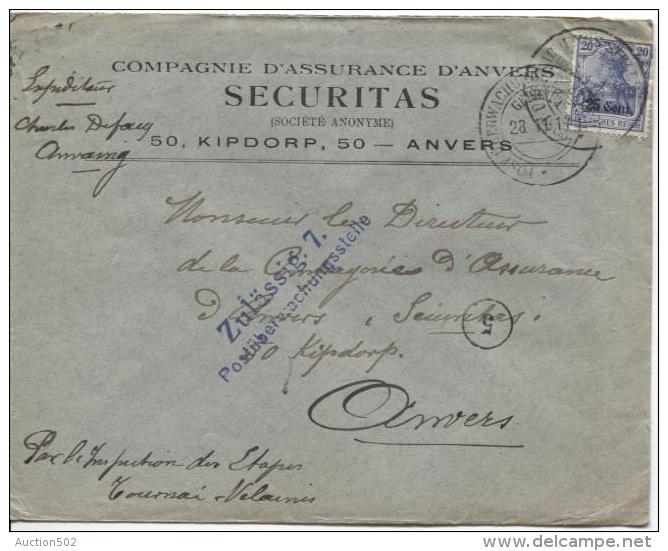 COMPAGNIE D'ASSURANCE D'ANVERS
SECURITAS
(SOCIÉTÉ ANONYME)
50, KIPDORP, 50 — ANVERS
Expéditeur
Charles
Anvaing
20 20
25 Cent.
DEUTSCHES REICH
28
Monsieur le Directeur
de la Compagnie d'Assurance
d'Anvers, Securitas
50 Kipdorp.
Anvers
Zulässig. 7.
Postüberwachungsstelle
Par l'Inspection des Etapes
Tournai - Velaines
Auction502
delcampe.net